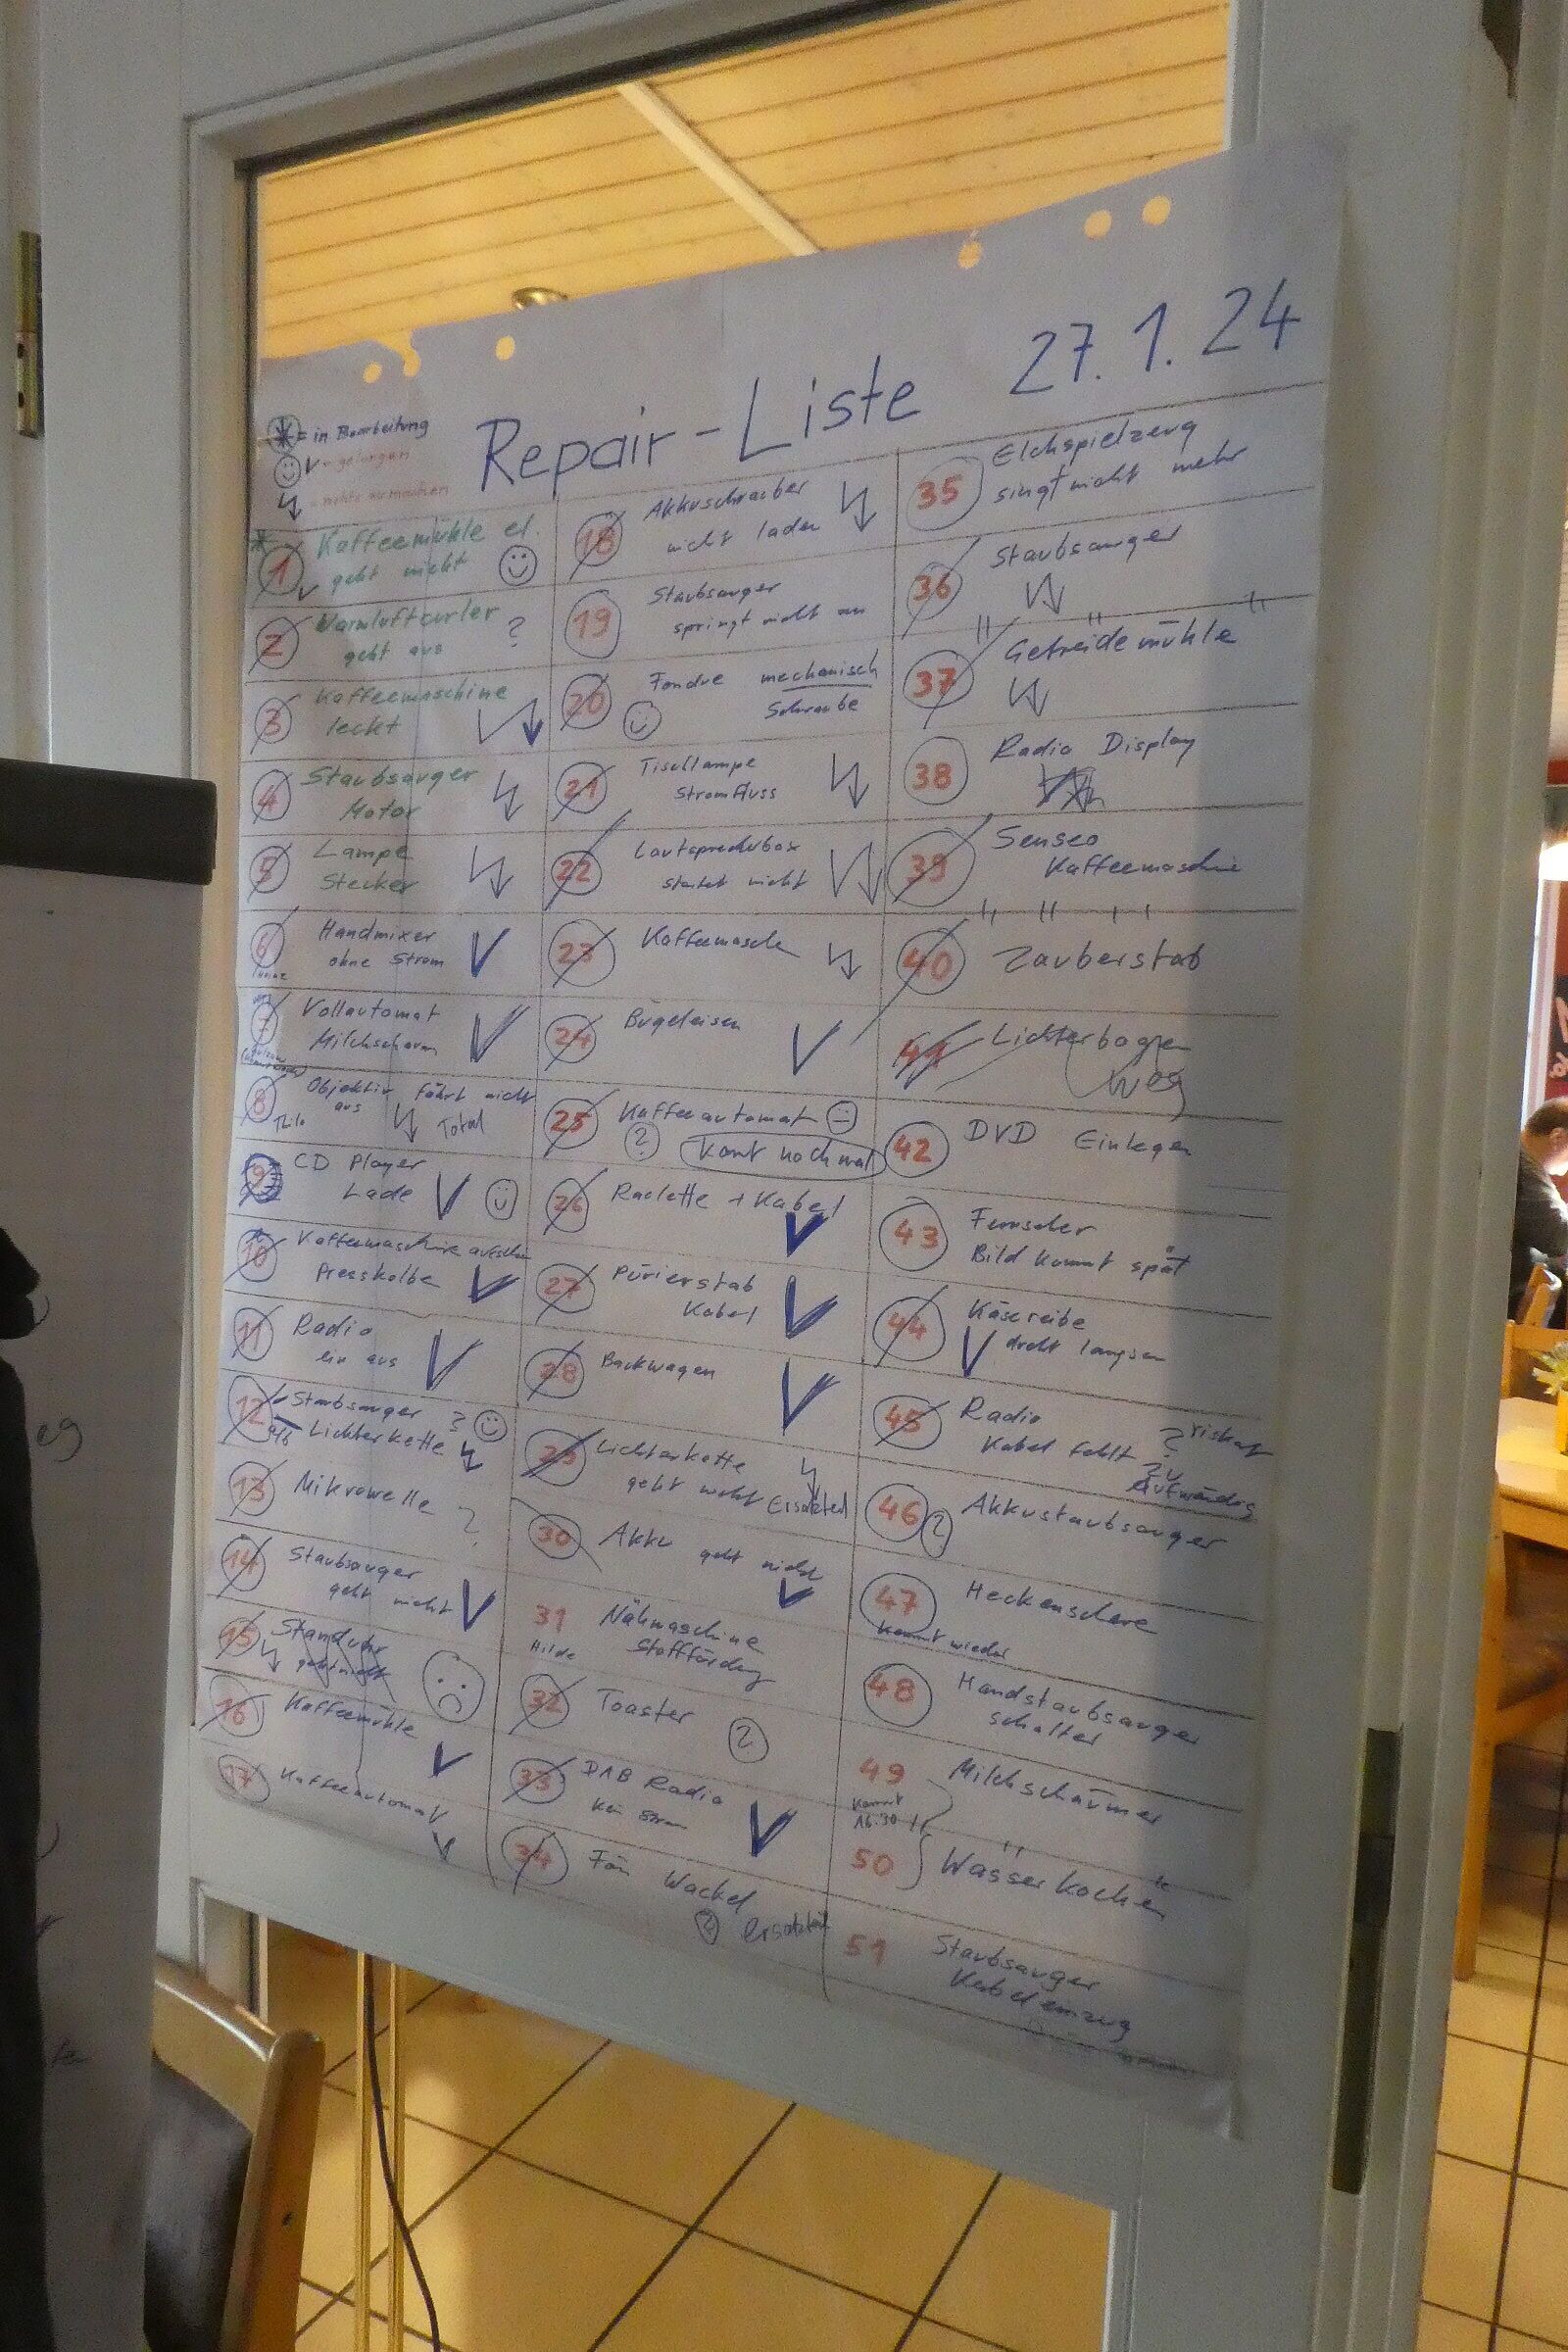 Repair-Liste 27.1.24
= in Bearbeitung
= gelungen
1 Kaffeemühle el.
geht nicht
2 Warmluftcurler ?
geht aus
3 Kaffeemaschine
leckt
4 Staubsauger
Motor
5 Lampe
Stecker
6 Handmixer
ohne Strom
7 Vollautomat
Milchscharm
8 Objektiv fährt nicht
aus Total
Thilo
9 CD Player
Lade
10 Kaffeemaschine
Presskolbe
11 Radio
ein aus
12 Staubsauger ?
Lichterkette
13 Mikrowelle ?
14 Staubsauger
geht nicht
15 Standuhr
geht nicht
16 Kaffeemühle
17 Kaffeeautomat
18 Akkuschrauber
nicht laden
19 Staubsauger
springt nicht an
20 Fondue mechanisch
Schraube
21 Tischlampe
Stromfluss
22 Lautsprecherbox
startet nicht
23 Kaffeemasch
24 Bügeleisen
25 Kaffeeautomat
? komt noch mal
26 Raclette + Kabel
27 Pürierstab
Kabel
28 Backwagen
29 Lichterkette
geht nicht Ersatzteil
30 Akku geht nicht
31 Nähmaschine
Hilde Stoffördng
32 Toaster ?
33 DAB Radio
kein Strom
34 Fön Wackel
? Ersatzteil
35 Elchspielzeug
singt nicht mehr
36 Staubsauger
37 Getreidemühle
38 Radio Display
39 Senseo
Kaffeemaschine
40 Zauberstab
41 Lichterbogen
Weg
42 DVD Einlegen
43 Fernseher
Bild kommt spät
44 Käsereibe
dreht langsam
45 Radio
Kabel fehlt ? riskant
zu
Aufwändig
46 ? Akkustaubsauger
47 Heckenschere
kommt wieder
48 Handstaubsauger
schalter
49 Milchschäumer
kommt
16:30
50 Wasserkocher
51 Staubsauger
Kabeleinzug